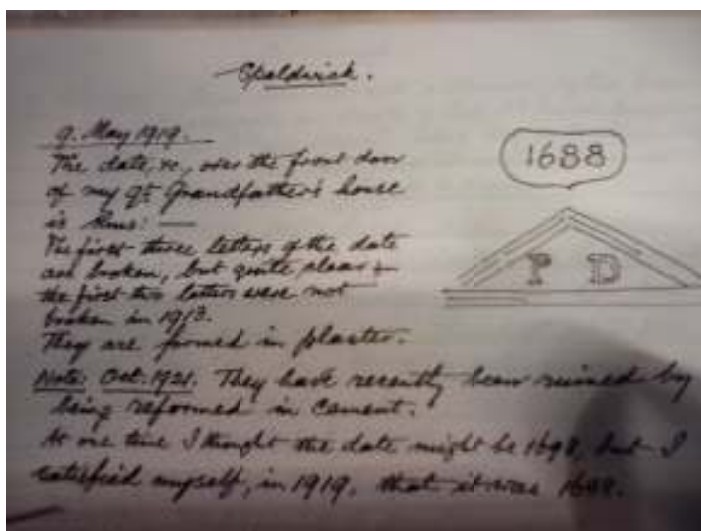 Spaldwick.
9. May 1919.
The date, &c, over the front door
of my gt Grandfather's house
is thus: —
1688
P D
The first three letters of the date
are broken, but quite clear &
the first two letters were not
broken in 1913.
They are formed in plaster.
Note: Oct. 1921. They have recently been ruined by
being reformed in cement.
At one time I thought the date might be 1698, but I
satisfied myself, in 1919, that it was 1688.